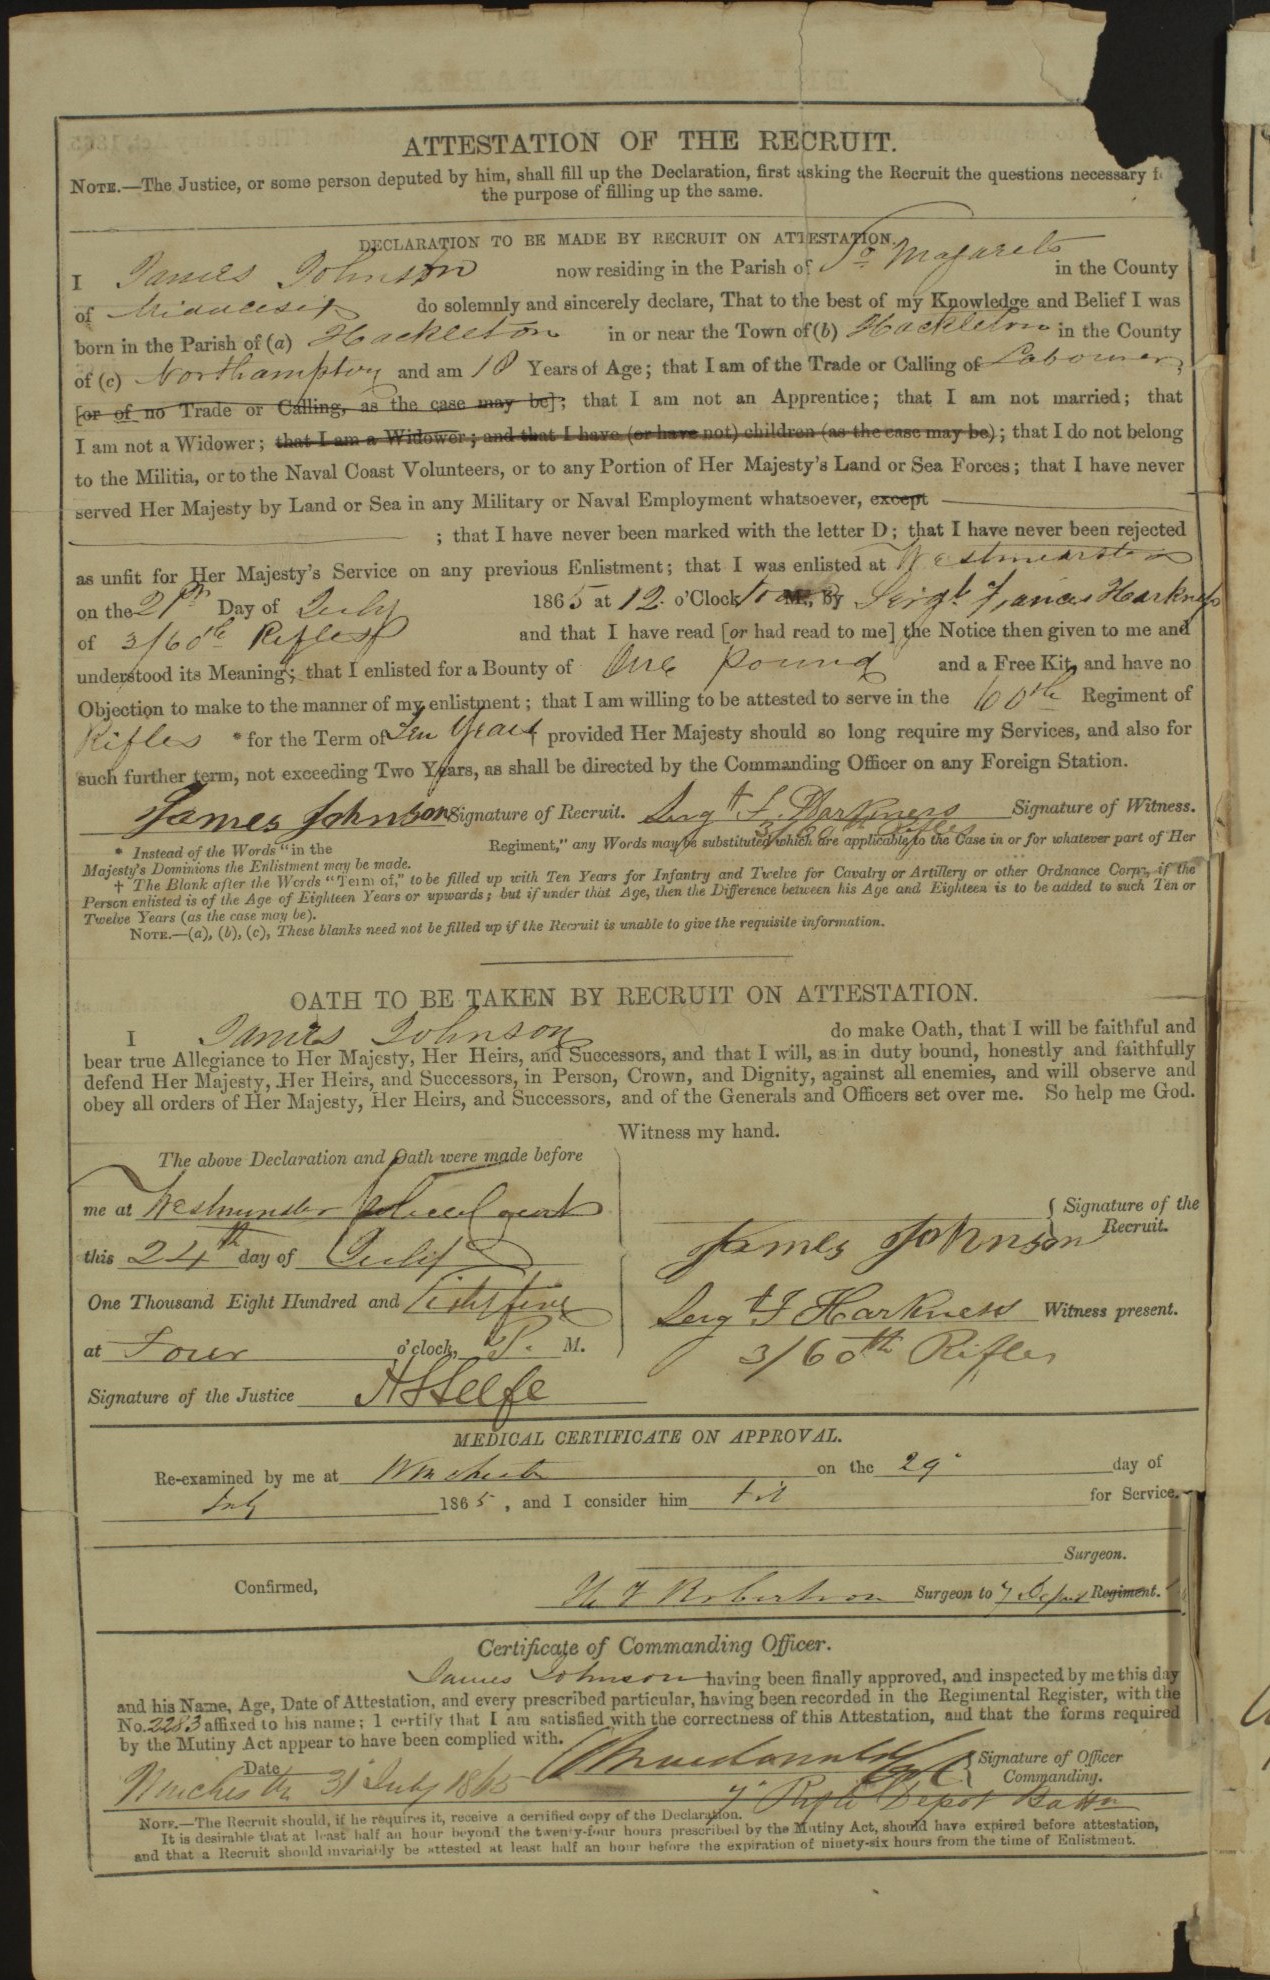 ATTESTATION OF THE RECRUIT.
NOTE.—The Justice, or some person deputed by him, shall fill up the Declaration, first asking the Recruit the questions necessary f
the purpose of filling up the same.
DECLARATION TO BE MADE BY RECRUIT ON ATTESTATION.
I James Johnson now residing in the Parish of St. Magarets in the County
of Middlesex do solemnly and sincerely declare, That to the best of my Knowledge and Belief I was
born in the Parish of (a) Hackleton in or near the Town of (b) Hackleton in the County
of (c) Northampton and am 18 Years of Age; that I am of the Trade or Calling of Labourer,
[or of no Trade or Calling, as the case may be]; that I am not an Apprentice; that I am not married; that
I am not a Widower; that I am a Widower; and that I have (or have not) children (as the case may be); that I do not belong
to the Militia, or to the Naval Coast Volunteers, or to any Portion of Her Majesty's Land or Sea Forces; that I have never
served Her Majesty by Land or Sea in any Military or Naval Employment whatsoever, except
; that I have never been marked with the letter D; that I have never been rejected
as unfit for Her Majesty's Service on any previous Enlistment; that I was enlisted at Westminster
on the 21st Day of July 1865 at 12 o'Clock M., by Sergt. Francis Harkness
of 3/60th Rifles and that I have read [or had read to me] the Notice then given to me and
understood its Meaning; that I enlisted for a Bounty of One Pound and a Free Kit, and have no
Objection to make to the manner of my enlistment; that I am willing to be attested to serve in the 60th Regiment of
Rifles * for the Term of Ten Years † provided Her Majesty should so long require my Services, and also for
such further term, not exceeding Two Years, as shall be directed by the Commanding Officer on any Foreign Station.
James Johnson Signature of Recruit. Sergt F. Harkness Signature of Witness.
3/60th Rifles
* Instead of the Words "in the Regiment," any Words may be substituted which are applicable to the Case in or for whatever part of Her
Majesty's Dominions the Enlistment may be made.
† The Blank after the Words "Term of," to be filled up with Ten Years for Infantry and Twelve for Cavalry or Artillery or other Ordnance Corps, if the
Person enlisted is of the Age of Eighteen Years or upwards; but if under that Age, then the Difference between his Age and Eighteen is to be added to such Ten or
Twelve Years (as the case may be).
NOTE.—(a), (b), (c), These blanks need not be filled up if the Recruit is unable to give the requisite information.
OATH TO BE TAKEN BY RECRUIT ON ATTESTATION.
I James Johnson do make Oath, that I will be faithful and
bear true Allegiance to Her Majesty, Her Heirs, and Successors, and that I will, as in duty bound, honestly and faithfully
defend Her Majesty, Her Heirs, and Successors, in Person, Crown, and Dignity, against all enemies, and will observe and
obey all orders of Her Majesty, Her Heirs, and Successors, and of the Generals and Officers set over me. So help me God.
Witness my hand.
The above Declaration and Oath were made before
me at Westminster Police Court
this 24th day of July
One Thousand Eight Hundred and Sixty five
at Four o'clock, P. M.
Signature of the Justice
Signature of the
Recruit.
James Johnson
Sergt F Harkness Witness present.
3/60th Rifles
MEDICAL CERTIFICATE ON APPROVAL.
Re-examined by me at Winchester on the 29 day of
July 1865, and I consider him fit for Service.
Surgeon.
Confirmed, Robertson Surgeon to 7 Depot Regiment.
Certificate of Commanding Officer.
James Johnson having been finally approved, and inspected by me this day
and his Name, Age, Date of Attestation, and every prescribed particular, having been recorded in the Regimental Register, with the
No. 2283 affixed to his name; I certify that I am satisfied with the correctness of this Attestation, and that the forms required
by the Mutiny Act appear to have been complied with.
Date Signature of Officer
Commanding.
Winchester 31st July 1865
7th Rifle Depot Battn
NOTE.—The Recruit should, if he requires it, receive a certified copy of the Declaration.
It is desirable that at least half an hour beyond the twenty-four hours prescribed by the Mutiny Act, should have expired before attestation,
and that a Recruit should invariably be attested at least half an hour before the expiration of ninety-six hours from the time of Enlistment.